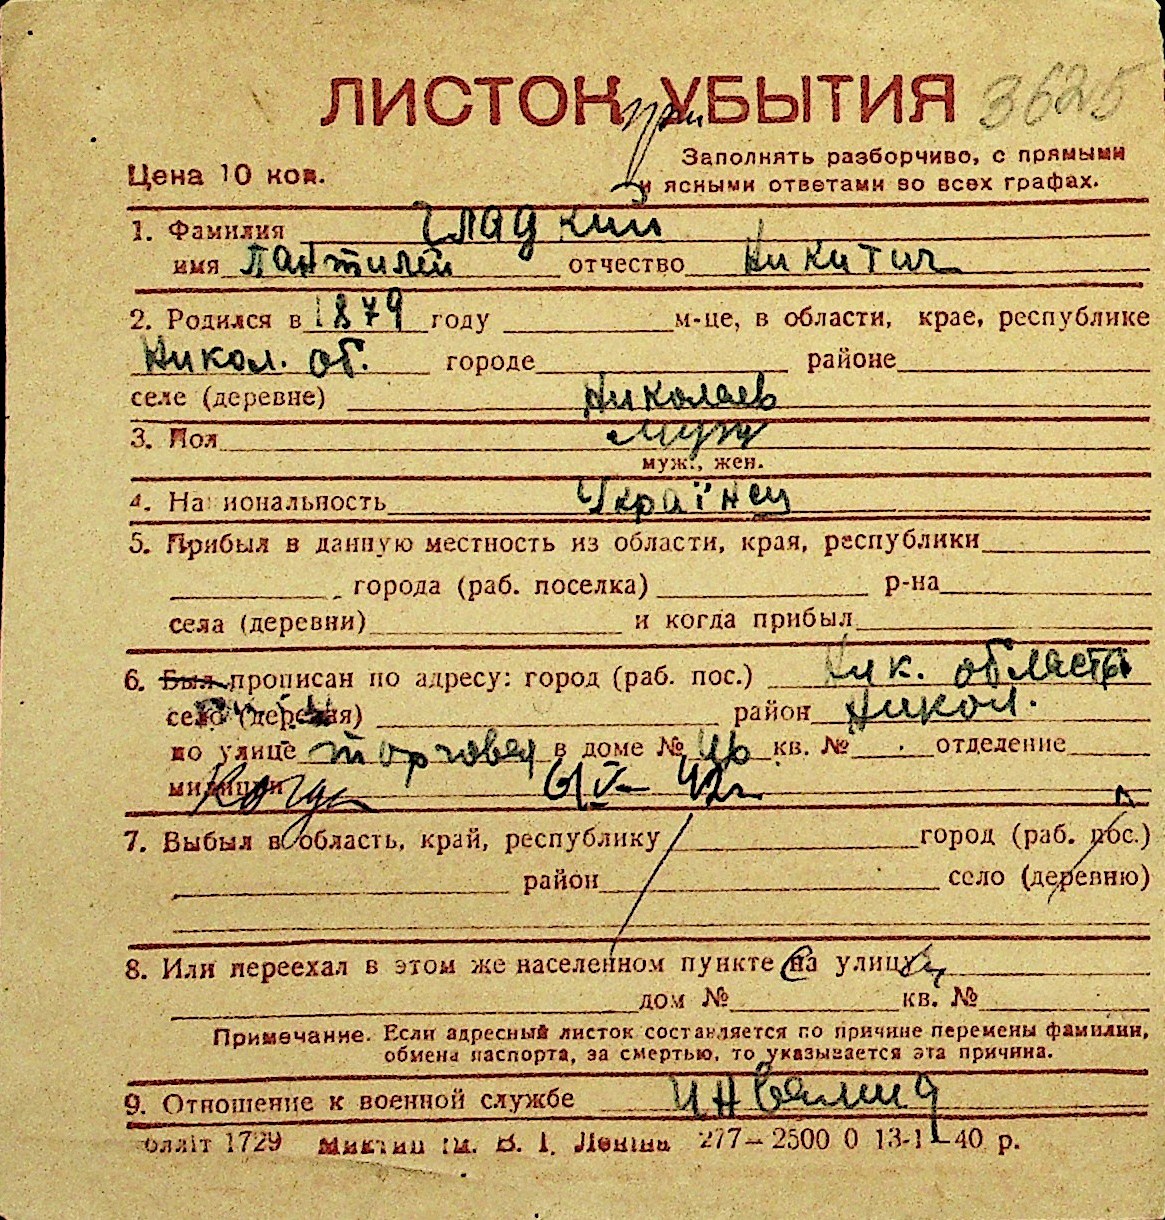 ЛИСТОК УБЫТИЯ 3625
при
Цена 10 коп.
Заполнять разборчиво, с прямыми
и ясными ответами во всех графах.
1. Фамилия Гладкий
имя Пантилей отчество Никитич
2. Родился в 1879 году м-це, в области, крае, республике
Никол. об. городе районе
селе (деревне) Николаев
3. Пол муж
муж., жен.
4. Национальность Українец
5. Прибыл в данную местность из области, края, республики
города (раб. поселка) р-на
села (деревни) и когда прибыл
6. Был прописан по адресу: город (раб. пос.) Ник. область
село (деревня) район Никол.
по улице торговая в доме № 46 кв. № отделение
милиции Когда 6/V- 42г
7. Выбыл в область, край, республику город (раб. пос.)
район село (деревню)
8. Или переехал в этом же населенном пункте на улицу
дом № кв. №
Примечание. Если адресный листок составляется по причине перемены фамилии,
обмена паспорта, за смертью, то указывается эта причина.
9. Отношение к военной службе инвалид
блліт 1729 ім. В. І. Леніна 277—2500 0 13-1—40 р.